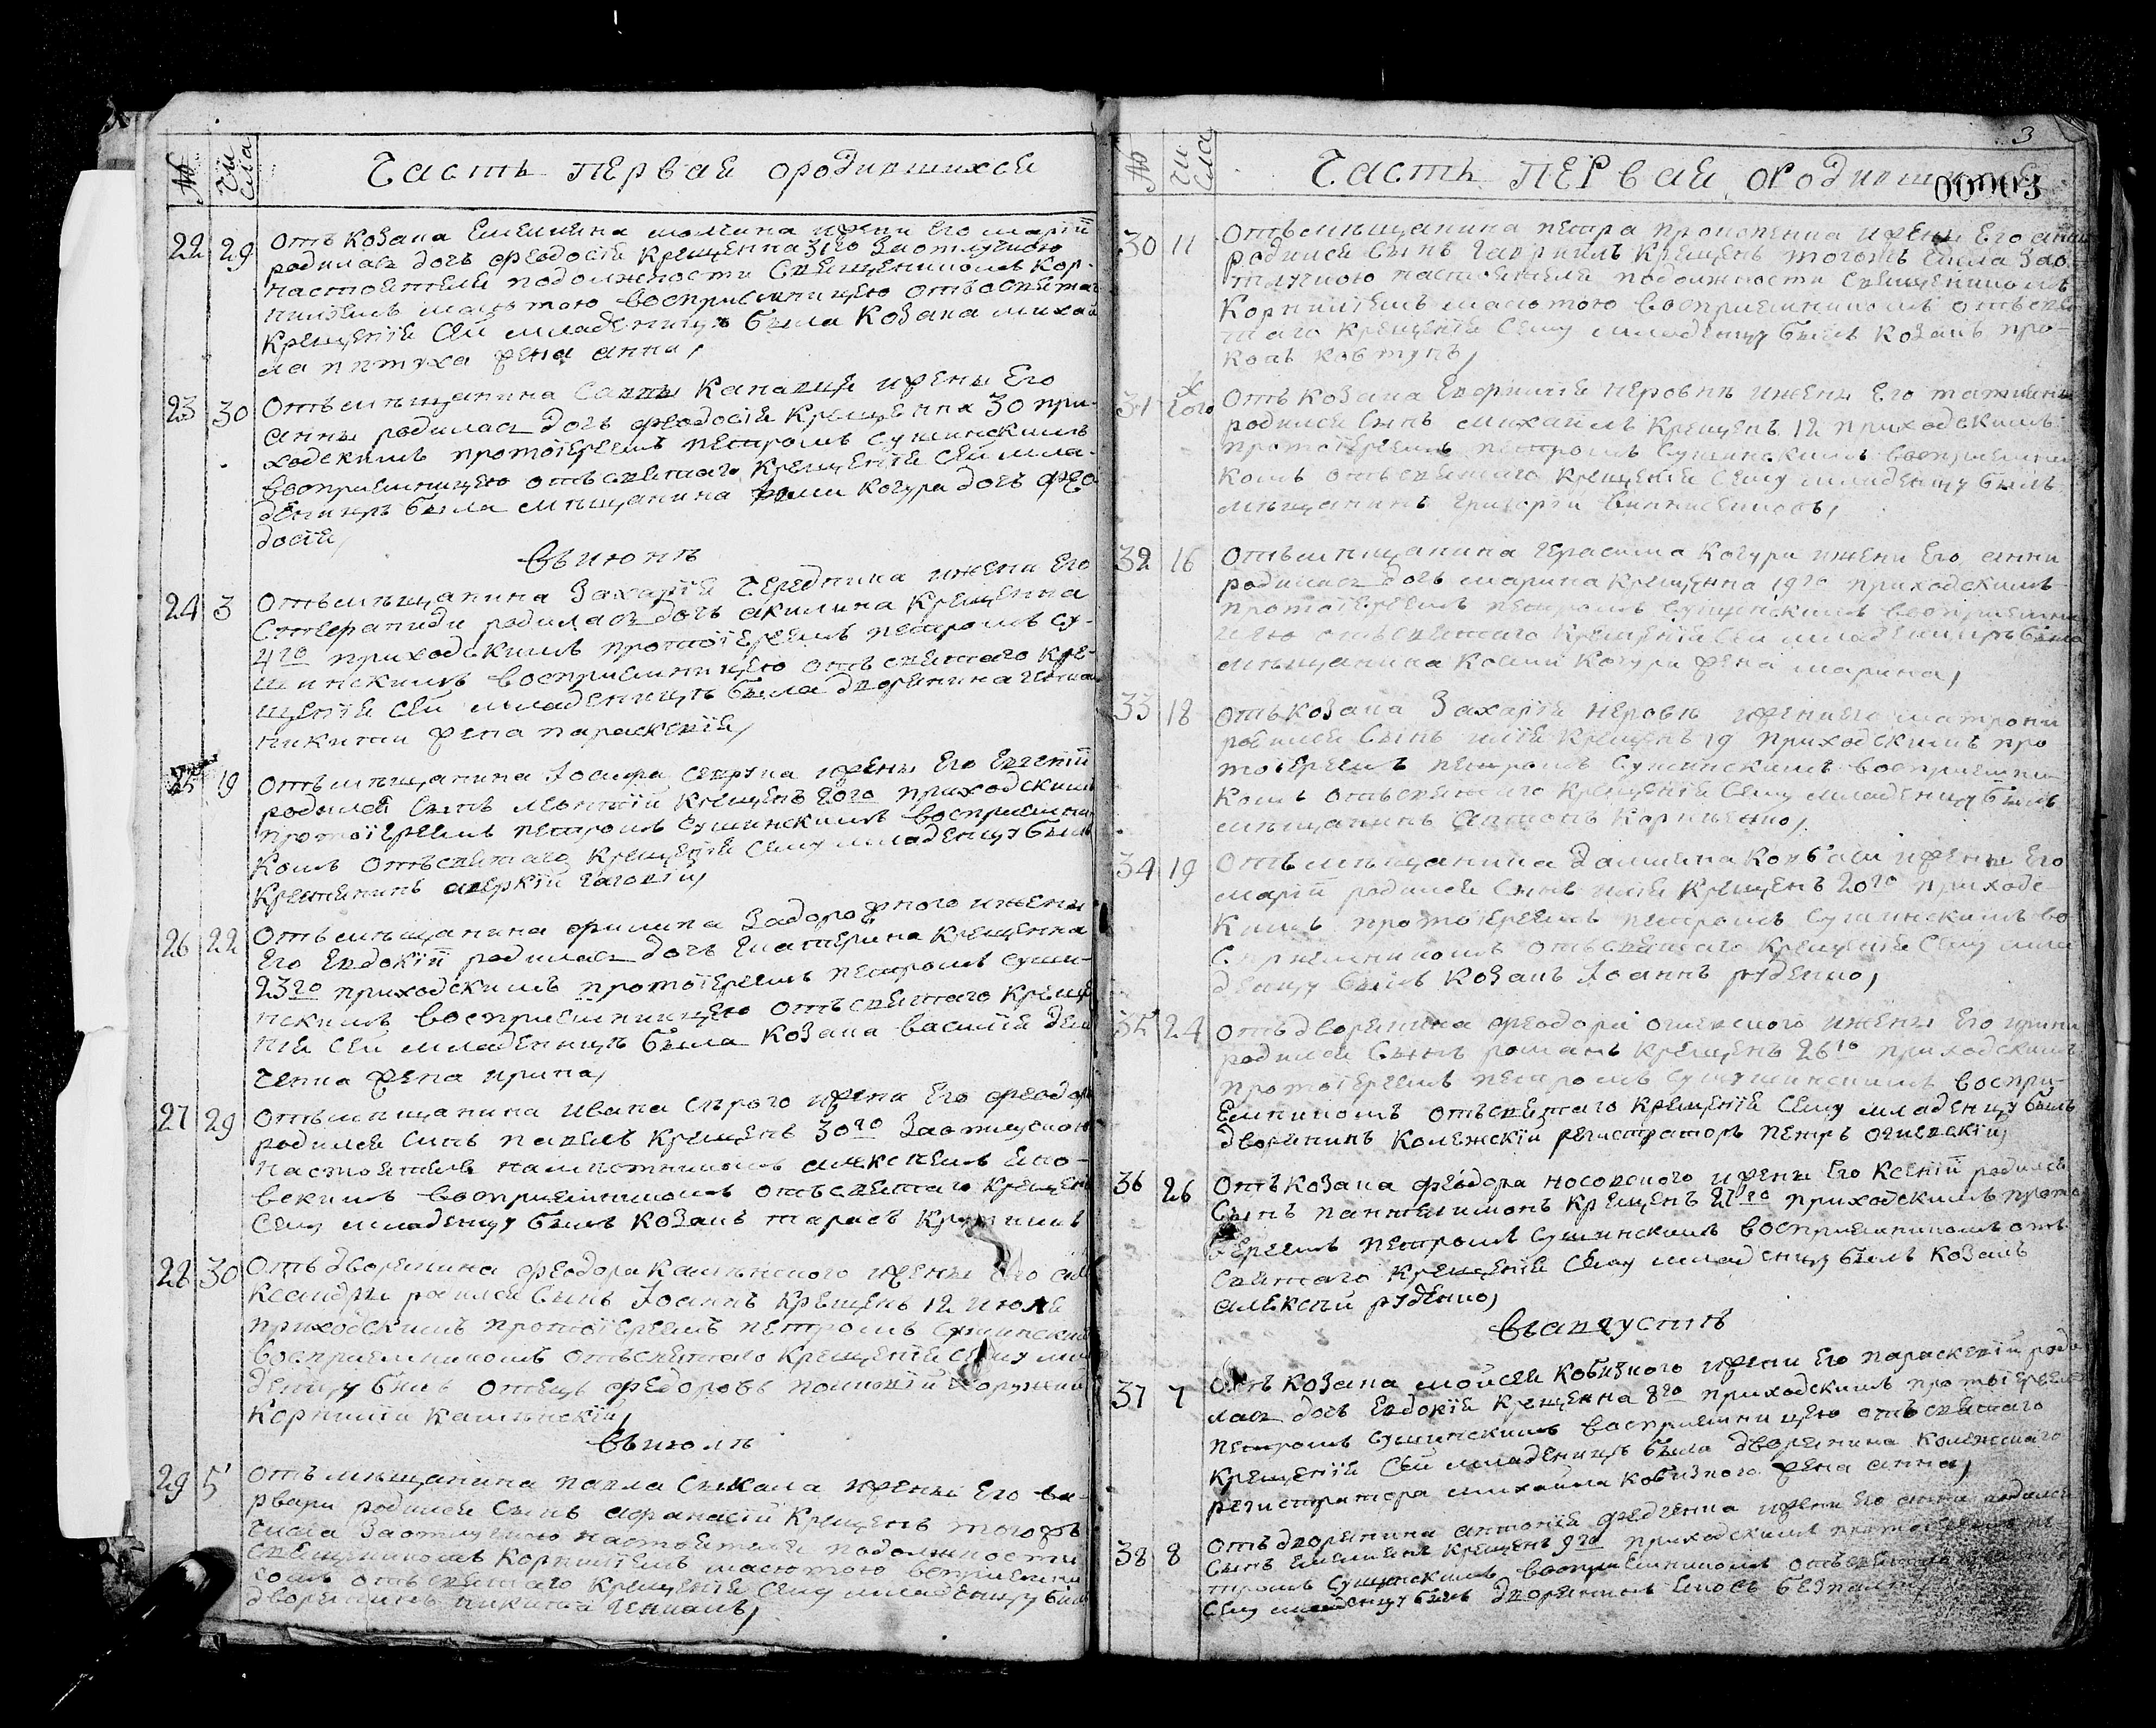 № Чи
сла
Часть первая ородившихся
22 29 Отъ козака Емелиана малчина и жени его маріи
родилась дочь феодосія Крещенна 31го За отлучкою
настоятеля подолжности Священникомъ Кор-
восприемницею отъ святаго
Крещенія Сей младеници была козака михай
ла питуха жена анна,
23 30 Отъ мѣщанина Савы Канавця и жены Его
анны родилась дочь феодосія Крещенна 30 при-
ходскимъ протоіереемъ петромъ Сушинскимъ
восприемницею отъ святаго Крещенія Сей мла-
деницѣ была мѣщанина Когура дочь фео
досія,
Въ июнѣ
24 3 Отъ мѣщанина Захаріи Чередника и жени Его
Степаниди родилась дочь акилина Крещенна
4го приходскимъ протоіереемъ петромъ Су-
шинскимъ восприемницею отъ святаго Кре-
щенія Сей младеницѣ была дворянина
никити жена параскевія,
25 19 Отъ мѣщанина Іосифа и жены Его Евгеніи
родился Сынъ леонтій Крещенъ 20го приходскимъ
протоіереемъ петромъ Сушинскимъ восприемни
комъ отъ святаго Крещенія Сему младенцу былъ
аверкій
26 22 Отъ мѣщанина филипа Задорожного и жены
Его Евдокіи родилась дочь Екатерина Крещенна
23го приходскимъ протоіереемъ петромъ Суши-
нскимъ восприемницею отъ святаго Креще
нія Сей младенницѣ была козака василія Дем
ченка жена ирина,
27 29 Отъ мѣщанина ивана Сѣрого и жени Его феодоры
родился Синъ павелъ Крещенъ 30го За отлучкою
настоятеля намѣстникомъ алексѣемъ
восприемникомъ отъ святаго Крещен
Сему младенцу былъ козакъ тарасъ
28 30 Отъ дворянина феодора каминского и жены Его але
ксандры родился Сынъ Іоаннъ Крещенъ 12 июля
приходскимъ протоіереемъ петромъ Сушинскимъ
восприемникомъ отъ святаго Крещенія Сему мла
денцу былъ отецъ
Корнилій каминскій,
Въ июлѣ
29 5 Отъ мѣщанина павла и жены Его ва-
рвари родился Сынъ афанасій Крещенъ того жъ
числа За отлучкою настоятеля подолжности
Священникомъ Корниліемъ восприемни
комъ отъ святаго Крещенія Сему младенцу былъ
дворянинъ никита
3
00003
№ Чи
сла
Часть первая ородивш
30 11 Отъ мѣщанина петра прокопенка и жены Его анны
родился Сынъ гавриилъ Крещенъ тогожъ числа За о
тлучкою настоятеля подолжности Священникомъ
Корниліемъ восприемникомъ отъ свя
таго Крещенія Сему младенцу былъ козакъ про-
копъ ковтунъ,
31 Отъ козака Евфимія неровнѣ и жены Его татияны
родился Сынъ михаилъ Крещенъ 12 приходскимъ
протоіереемъ петромъ Сушинскимъ восприемни
комъ отъ святаго Крещенія Сему младенцу былъ
мѣщанинъ григорій
32 16 Отъ мѣщанина герасима Когури и жени Его анни
родилась дочь марина Крещенна 19го приходскимъ
протоіереемъ петромъ Сушинскимъ восприемни
цею отъ святаго Крещенія Сей младеницѣ была
мѣщанина космы Когури жена марина,
33 18 Отъ козака Захарія неровн и жени его матрони
родился Сынъ илія Крещенъ 19 приходскимъ про
тоіереемъ петромъ Сушинскимъ восприемни
комъ отъ святаго Крещенія Сему младенцу былъ
мѣщанинъ антонъ Корниенко,
34 19 Отъ мѣщанина Дамияна ковбаси и жены Его
маріи родился Сынъ илія Крещенъ 20го приходс-
кимъ протоіереемъ петромъ Сушинскимъ во
сприемникомъ отъ святаго Крещенія Сему мла
денцу былъ козакъ Іоаннъ руденко,
35 24 Отъ дворянина феодора огиевского и жены Его ирины
родился Сынъ романъ Крещенъ 26го приходскимъ
протоіереемъ петромъ Сушинскимъ воспри-
емникомъ отъ святаго Крещенія Сему младенцу былъ
дворянинъ Колежскій регистраторъ петръ огиевскій,
36 26 Отъ козака феодора носовского и жены Его Ксеніи родился
Сынъ пантелимонъ Крещенъ 27го приходскимъ прото
іереемъ петромъ Сушинскимъ восприемникомъ отъ
святаго Крещенія Сему младенцу былъ козакъ
алексѣй руденко,
Въ августѣ
37 7 Отъ козака мойсея кобизкого и жени Его параскевіи роди
лась дочь Евдокія Крещенна 8го приходскимъ протоіереемъ
петромъ Сушинскимъ восприемницею отъ святаго
Крещенія Сей младеницѣ была дворянина Колежского
регистратора михайла кобизкого жена анна,
38 8 Отъ дворянина антонія федченка и жени Его анни родился
Сынъ Емелиянъ Крещенъ 9го приходскимъ протоіереемъ пе
тромъ Сушинскимъ восприемникомъ отъ святаго
Сему младенцу былъ дворянинъ